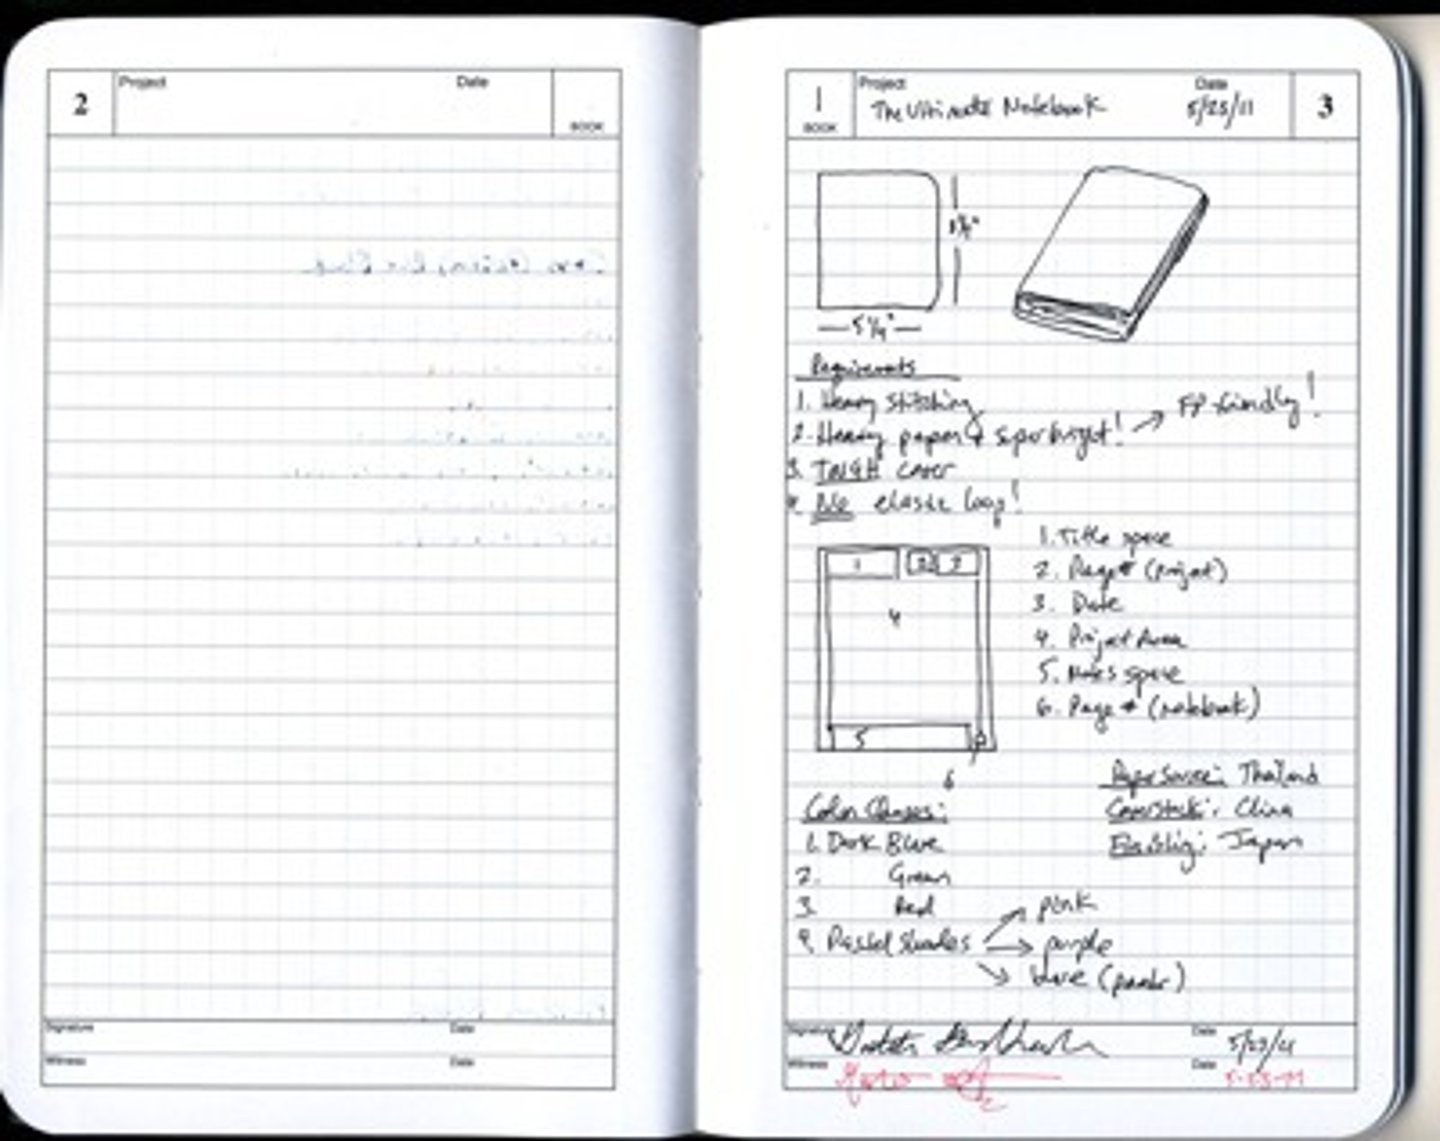 2
Project
Date
BOOK
Signature
Date
Witness
Date
1
BOOK
Project
The Ultimate Notebook
Date
5/23/11
3
5 1/4"
Requirements
1. Heavy stitching
2. Heavy paper & super bright! → FP friendly!
3. TOUGH cover
4. No elastic loop!
1
2
3
4
5
6
1. Title space
2. Page # (project)
3. Date
4. Project Area
5. Notes space
6. Page # (notebook)
Paper Source: Thailand
Coverstock: China
Finishing: Japan
Color Choices:
1. Dark Blue
2. Green
3. Red
4. Pastel shades → pink
→ purple
→ blue
Signature
Date
5/23/11
Witness
Date
5-23-11